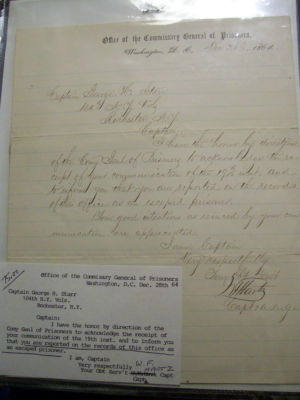 Office of the Commissary General of Prisoners,
Washington, D. C. Dec 28th 1864
Captain George H. Starr
104th N.Y. Vols
Rochester, N.Y.
Captain
I have the honor by direction
of the Comy Genl of Prisoners to acknowledge the re-
ceipt of your communication of the 19th inst, and
to inform you that you are reported on the records
of this office as an escaped prisoner.
Your good intentions as evinced by your com
munication are appreciated
I am, Captain
Very respectfully
Your Obt Servt
Office of the Commissary General of Prisoners
Washington, D.C. Dec. 28th 64
Captain George H. Starr
104th N.Y. Vols.
Rochester, N.Y.
Captain:
I have the honor by direction of the
Comy Genl of Prisoners to acknowledge the receipt
of your communication of the 19th inst. and to inform
you that you are reported on the records of this office as
an escaped prisoner.
I am, Captain
Very respectfully
Your Obt Serv't
Capt